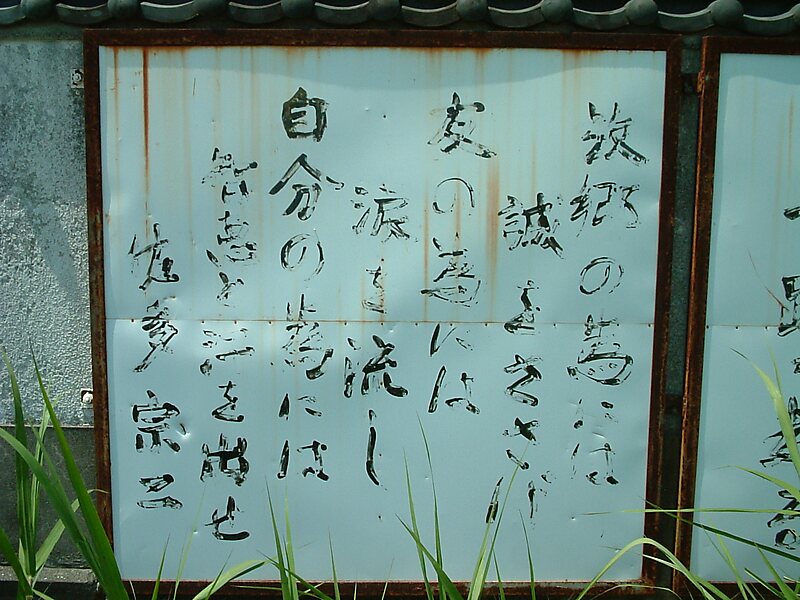 故郷の為には
誠をささげ
友の為には
涙を流し
自分の為には
智恵と汗を出せ
佐多宗二